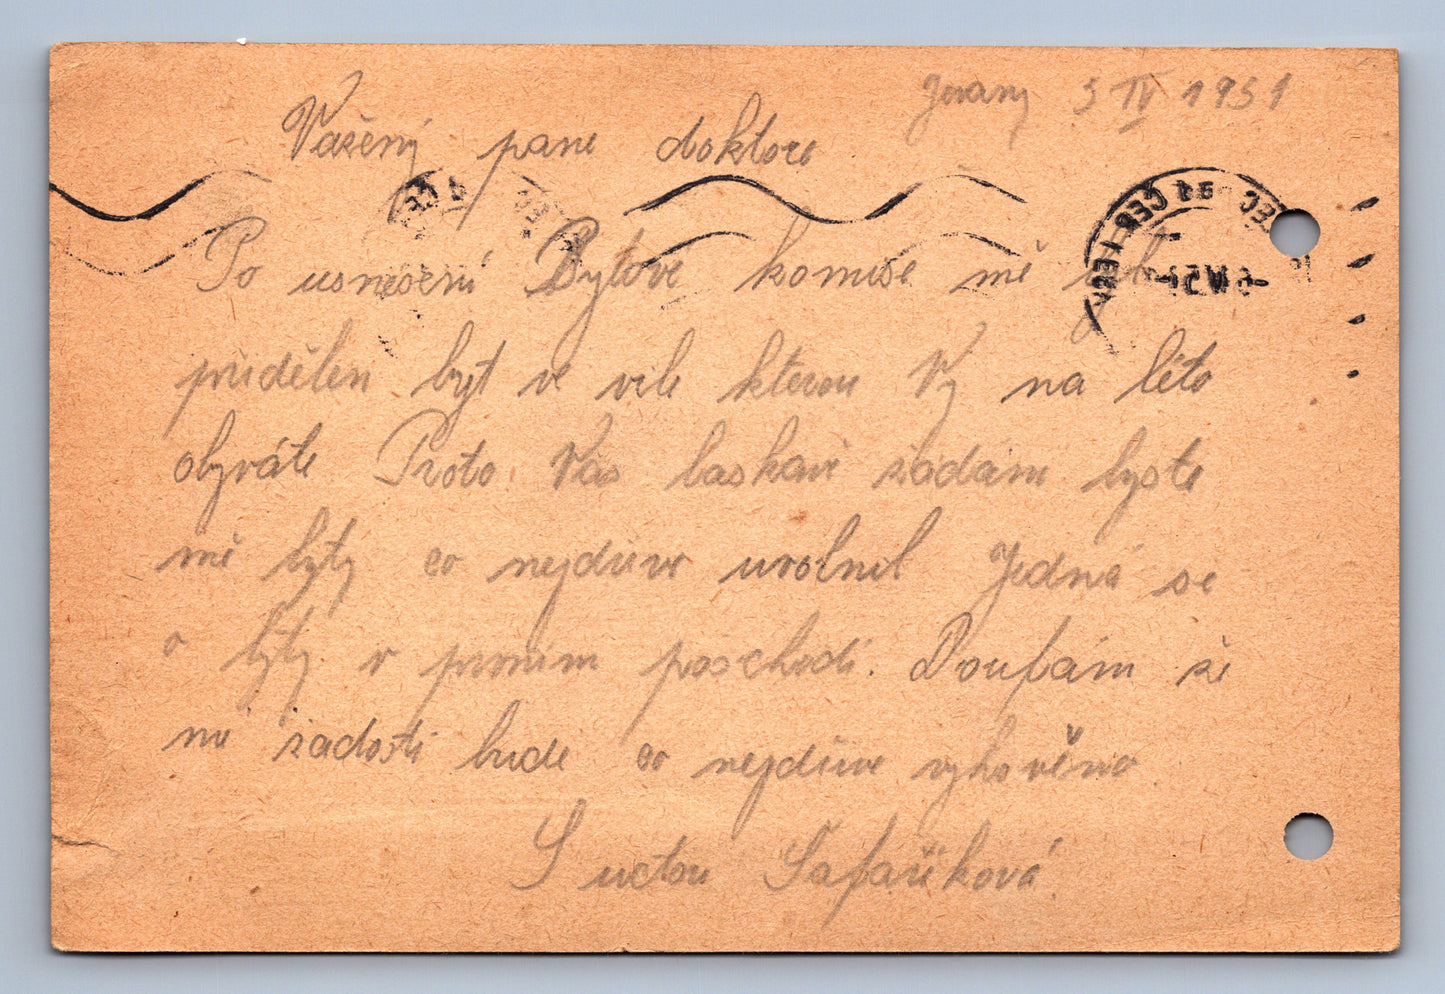 Jevany 5 IV 1951
Vážený pane doktore
Po usnesení Bytové komise mě
přidělen byt ve vile kterou Vy na léto
obyváte Proto Vás laskavě žádám byste
mě byty co nejdříve uvolnil Jedná se
o byty v prvním poschodí. Doufám že
mé žádosti bude co nejdříve vyhověno
S uctou Šafaříková